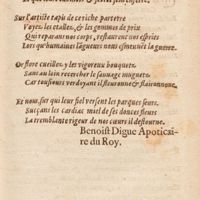 Sur l'artiste tapis de ce riche parterre
Voyez les etailes, & les gommes de prix
Qui reparans nos corps, restaurent nos esprits
Lors qu'humaines lãgueurs nous esmeuuẽt la guerre.
Or flore cueillez y les vigoreux bouquetz
Sans au loin rechercher le sauuage muguet
Car tousiours verdoyant il fleuronne & flaironne.
Et nous, sur qui leur fiel versent les parques seurs
Sucçans les cardiac miel de ses douces fleurs
La tremblante rigeur de nos cœurs il destourne.
Benoist Digue Apoticai-
re du Roy.